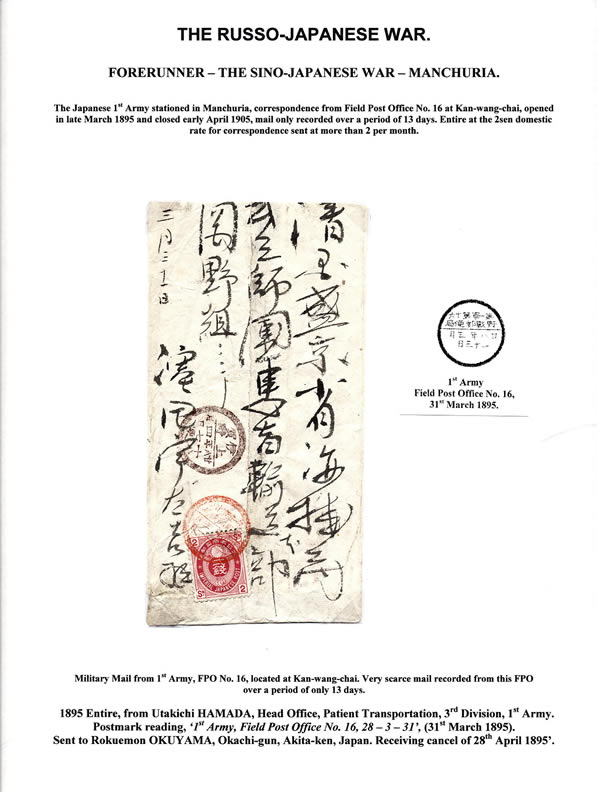 THE RUSSO-JAPANESE WAR.
FORERUNNER – THE SINO-JAPANESE WAR – MANCHURIA.
The Japanese 1st Army stationed in Manchuria, correspondence from Field Post Office No. 16 at Kan-wang-chai, opened
in late March 1895 and closed early April 1905, mail only recorded over a period of 13 days. Entire at the 2sen domestic
rate for correspondence sent at more than 2 per month.
清国盛京省海
師團患者輸送部
岡野組
三月三十一日
2
1st Army
Field Post Office No. 16,
31st March 1895.
Military Mail from 1st Army, FPO No. 16, located at Kan-wang-chai. Very scarce mail recorded from this FPO
over a period of only 13 days.
1895 Entire, from Utakichi HAMADA, Head Office, Patient Transportation, 3rd Division, 1st Army.
Postmark reading, ‘1st Army, Field Post Office No. 16, 28 – 3 – 31’, (31st March 1895).
Sent to Rokuemon OKUYAMA, Okachi-gun, Akita-ken, Japan. Receiving cancel of 28th April 1895’.